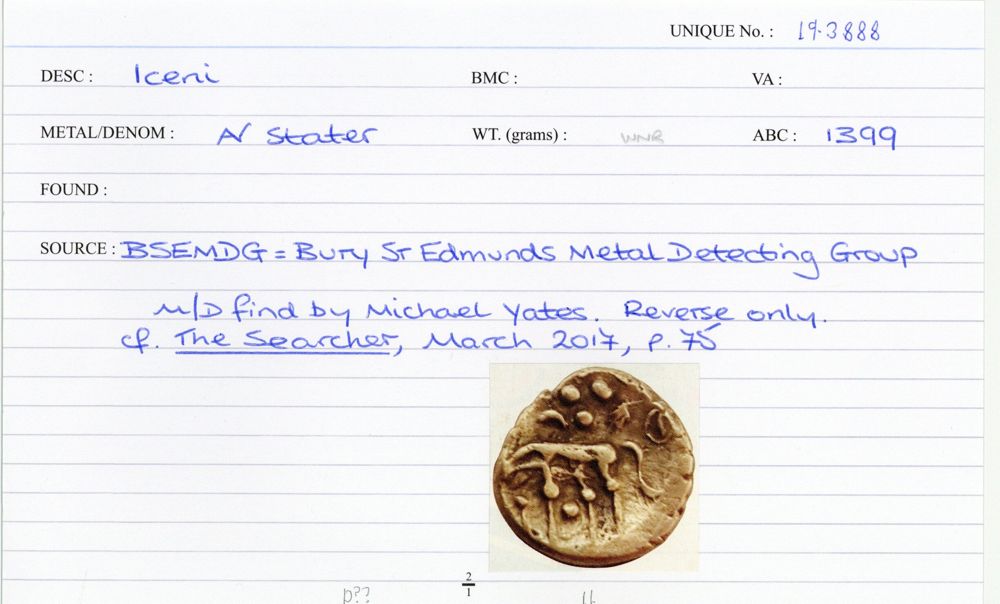 UNIQUE No. : 19.3888
DESC : Iceni BMC : VA :
METAL/DENOM : AV Stater WT. (grams) : WNR ABC : 1399
FOUND :
SOURCE : BSEMDG = Bury St Edmunds Metal Detecting Group
M/D find by Michael Yates. Reverse only.
cf. The Searcher, March 2017, p. 75
2
1
p??